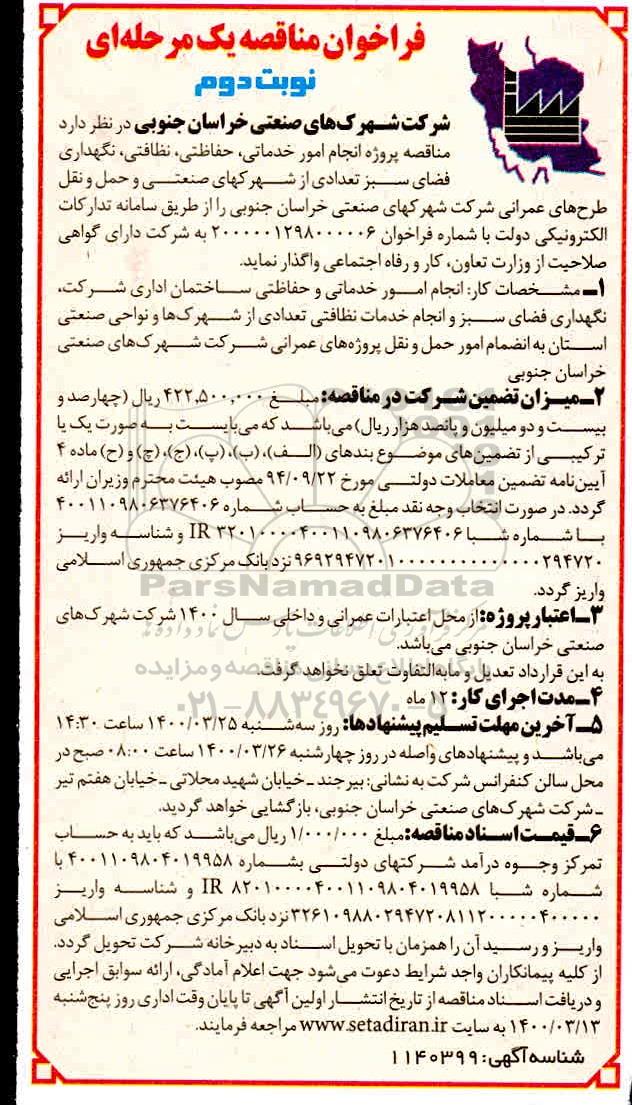 فراخوان مناقصه یک مرحله‌ای
نوبت دوم
شرکت شهرک‌های صنعتی خراسان جنوبی در نظر دارد
مناقصه پروژه انجام امور خدماتی، حفاظتی، نظافتی، نگهداری
فضای سبز تعدادی از شهرکهای صنعتی و حمل و نقل
طرح‌های عمرانی شرکت شهرکهای صنعتی خراسان جنوبی را از طریق سامانه تدارکات
الکترونیکی دولت با شماره فراخوان ۲۰۰۰۰۰۱۲۹۸۰۰۰۰۰۶ به شرکت دارای گواهی
صلاحیت از وزارت تعاون، کار و رفاه اجتماعی واگذار نماید.
۱ـ مشخصات کار: انجام امور خدماتی و حفاظتی ساختمان اداری شرکت،
نگهداری فضای سبز و انجام خدمات نظافتی تعدادی از شهرک‌ها و نواحی صنعتی
استان به انضمام امور حمل و نقل پروژه‌های عمرانی شرکت شهرک‌های صنعتی
خراسان جنوبی
۲ـ میزان تضمین شرکت در مناقصه: مبلغ ۴۲۲,۵۰۰,۰۰۰ ریال (چهارصد و
بیست و دو میلیون و پانصد هزار ریال) می‌باشد که می‌بایست به صورت یک یا
ترکیبی از تضمین‌های موضوع بندهای (الف)، (ب)، (پ)، (ج)، (چ) و (ح) ماده ۴
آیین‌نامه تضمین معاملات دولتی مورخ ۹۴/۰۹/۲۲ مصوب هیئت محترم وزیران ارائه
گردد. در صورت انتخاب وجه نقد مبلغ به حساب شماره ۴۰۰۱۱۰۹۸۰۶۳۷۶۴۰۶
با شماره شبا IR ۳۲۰۱۰۰۰۰۴۰۰۱۱۰۹۸۰۶۳۷۶۴۰۶ و شناسه واریز
نزد بانک مرکزی جمهوری اسلامی
واریز گردد.
۳ـ اعتبار پروژه: از محل اعتبارات عمرانی و داخلی سال ۱۴۰۰ شرکت شهرک‌های
صنعتی خراسان جنوبی می‌باشد.
به این قرارداد تعدیل و مابه‌التفاوت تعلق نخواهد گرفت.
۴ـ مدت اجرای کار: ۱۲ ماه
۵ـ آخرین مهلت تسلیم پیشنهادها: روز سه‌شنبه ۱۴۰۰/۰۳/۲۵ ساعت ۱۴:۳۰
می‌باشد و پیشنهادهای واصله در روز چهارشنبه ۱۴۰۰/۰۳/۲۶ ساعت ۰۸:۰۰ صبح در
محل سالن کنفرانس شرکت به نشانی: بیرجند ـ خیابان شهید محلاتی ـ خیابان هفتم تیر
ـ شرکت شهرک‌های صنعتی خراسان جنوبی، بازگشایی خواهد گردید.
۶ـ قیمت اسناد مناقصه: مبلغ ۱/۰۰۰/۰۰۰ ریال می‌باشد که باید به حساب
تمرکز وجوه درآمد شرکتهای دولتی بشماره ۴۰۰۱۱۰۹۸۰۴۰۱۹۹۵۸ با
شماره شبا IR ۸۲۰۱۰۰۰۰۴۰۰۱۱۰۹۸۰۴۰۱۹۹۵۸ و شناسه واریز
۳۲۶۱۰۹۸۸۰۲۹۴۷۲۰۸۱۱۲۰۰۰۰۰۴۰۰۰۰۰ نزد بانک مرکزی جمهوری اسلامی
واریز و رسید آن را همزمان با تحویل اسناد به دبیرخانه شرکت تحویل گردد.
از کلیه پیمانکاران واجد شرایط دعوت می‌شود جهت اعلام آمادگی، ارائه سوابق اجرایی
و دریافت اسناد مناقصه از تاریخ انتشار اولین آگهی تا پایان وقت اداری روز پنج‌شنبه
۱۴۰۰/۰۳/۱۳ به سایت www.setadiran.ir مراجعه فرمایند.
شناسه آگهی: ۱۱۴۰۳۹۹
ParsNamadData
۰۲۱-۸۸۳۴۹۶۷۰-۵